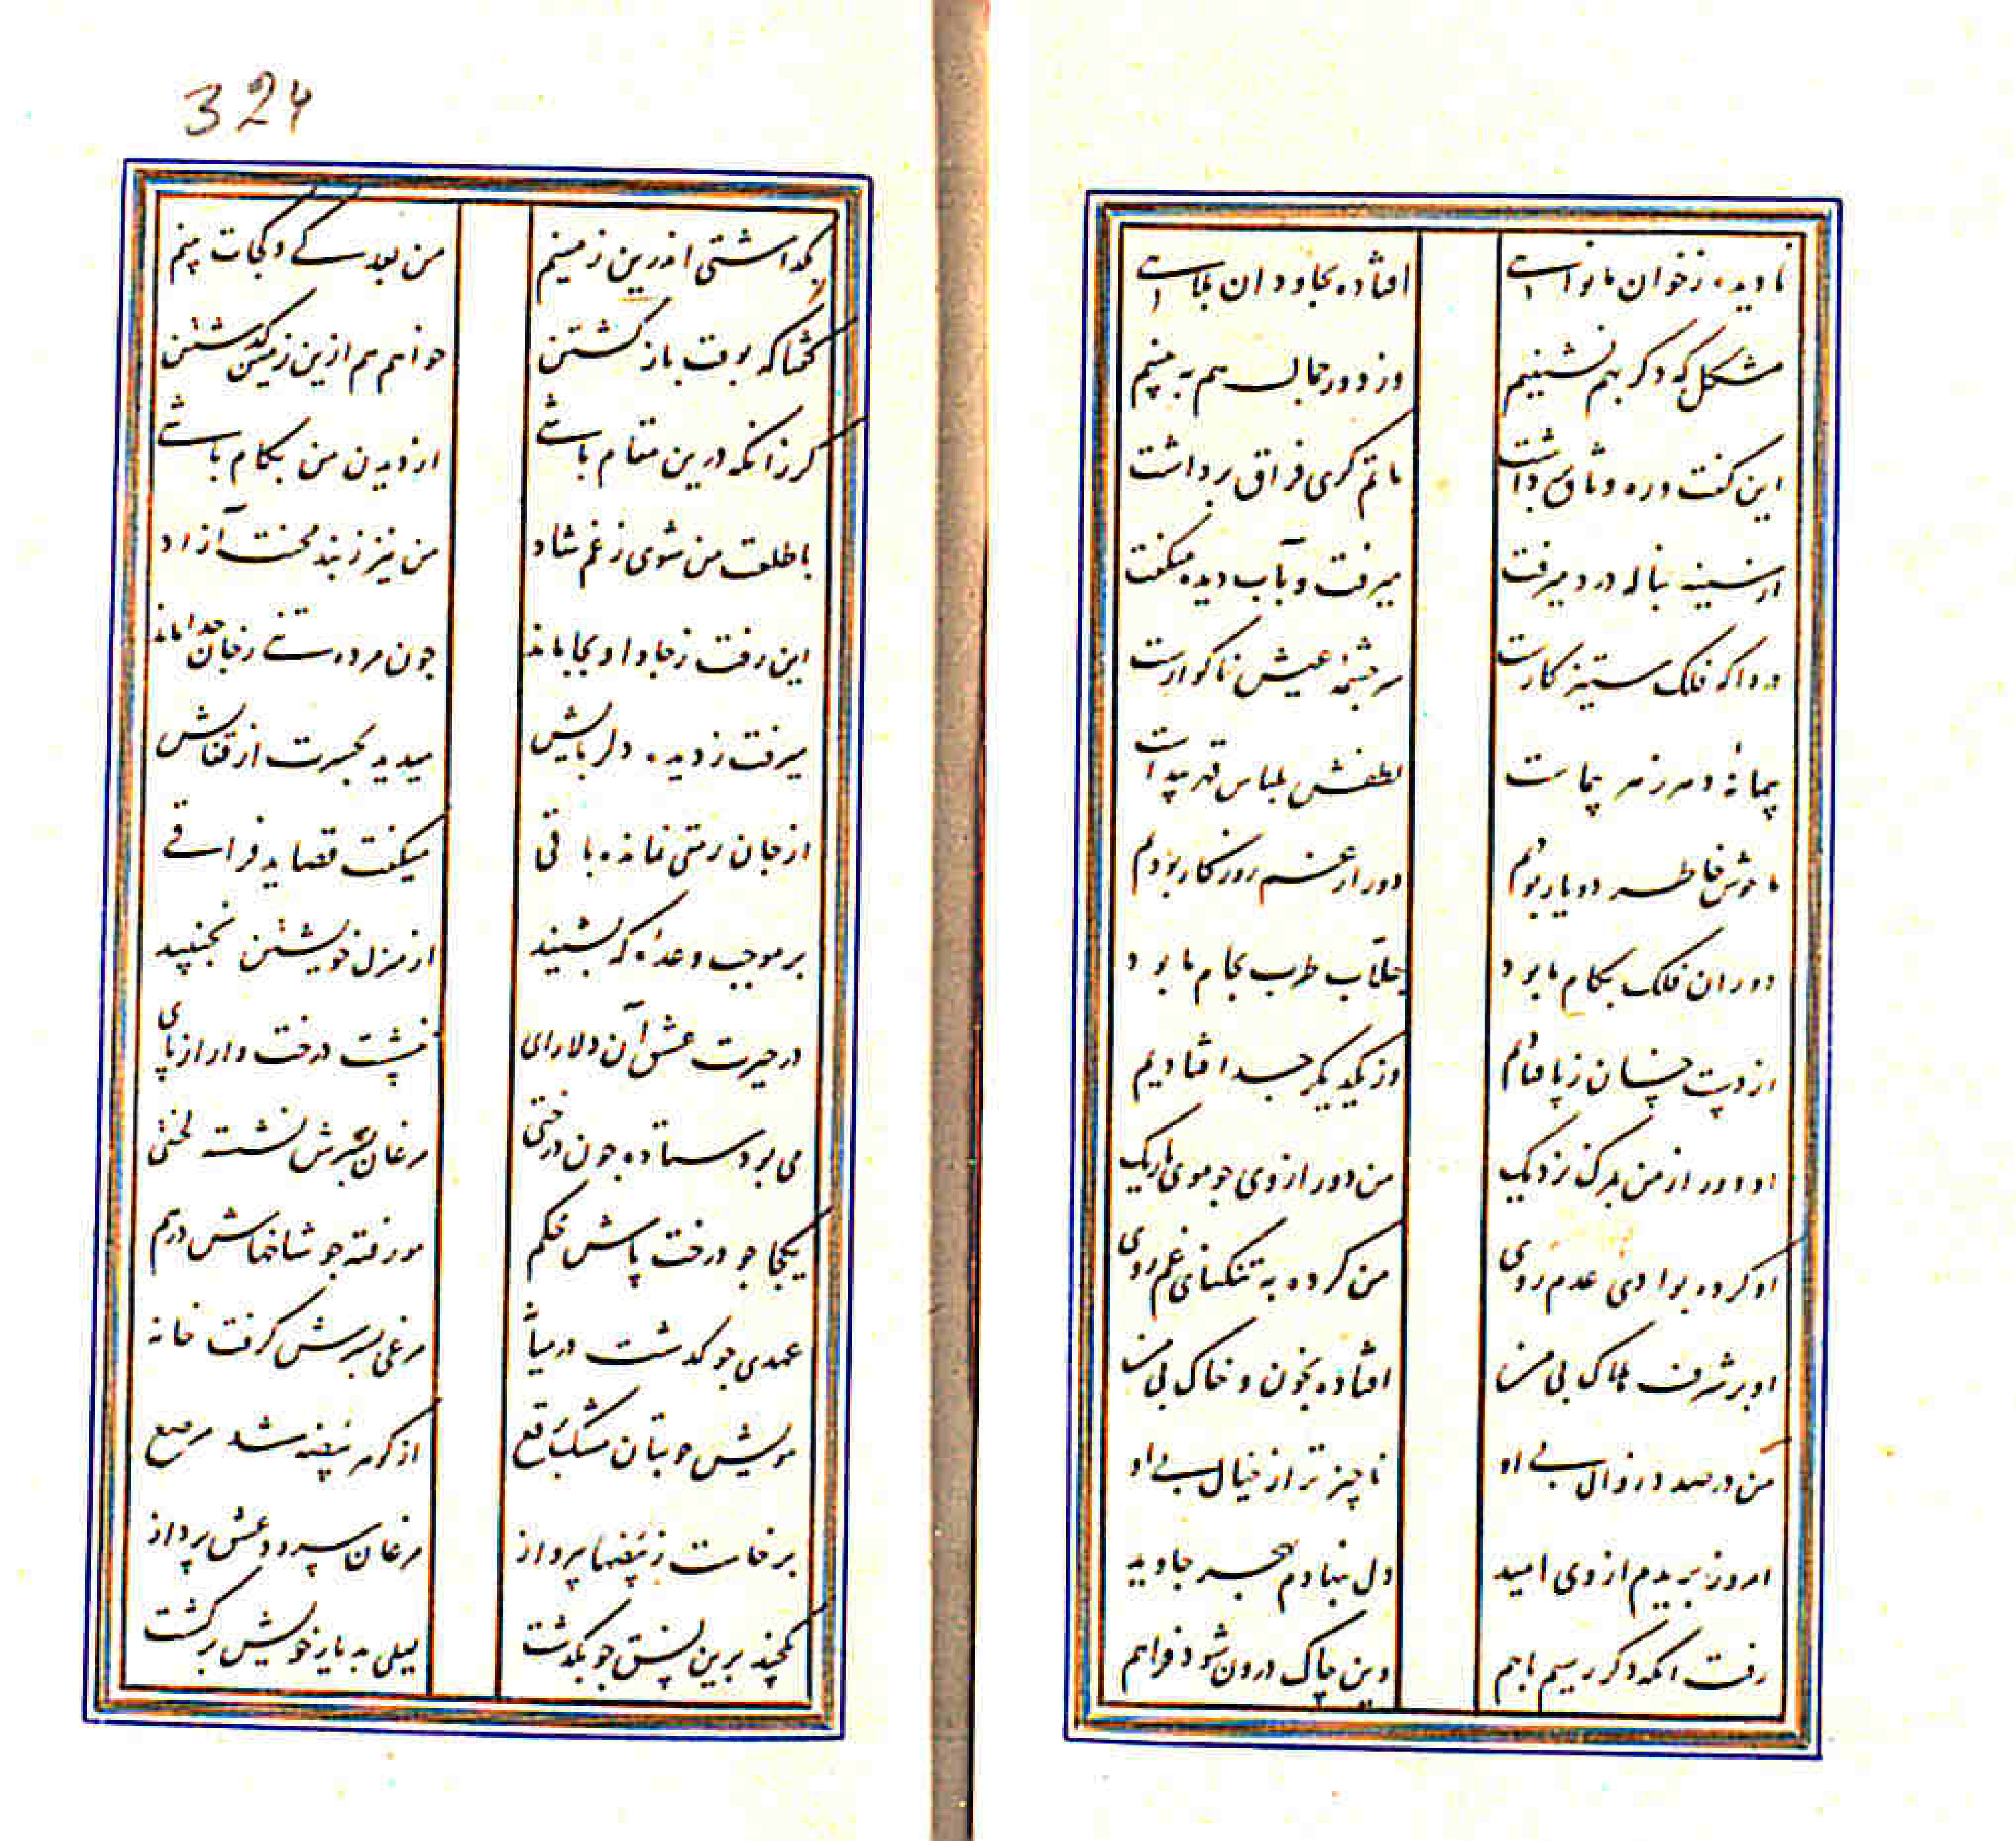 324
نادیده ز خوان ما نواست افتاده بجاودان بلاست
مشکل که دگر بهم نشینیم وز دور جمال هم ببینیم
این گفت و ره وثاق برداشت ماتم گری فراق برداشت
از سینه بناله درد میرفت میرفت و بآب دیده میگفت
دردا که فلک ستیزه کارست سرچشمه عیش ناگوارست
پیمانه دهر زهر پیماست لطفش بلباس قهر پیداست
ما خوش خاطر دو یار بودیم دور از غم روزگار بودیم
دوران فلک بکام ما بود جلاب طرب بجام ما بود
از دست خسان ز پا فتادیم وز یکدیگر جدا افتادیم
او دور از من بمرگ نزدیک من دور از وی جو موی باریک
او کرده بوادی عدم روی من کرده به تنگنای غم روی
او بر شرف هلاک بی من افتاده بخون و خاک بی من
من در صدد زوال بی او ناچیزتر از خیال بی او
امروز بریدم از وی امید دل بنهادم بهجر جاوید
رفت انکه دگر رسیم باهم وین چاک درون شود فراهم
بگداشتی اندرین زمینم من بعد کی و کجات بینم
گفتا که بوقت باز گشتن خواهم هم ازین زمین گذشتن
گر زانکه درین مقام باشی از دیدن من بکام باشی
با طلعت من شوی ز غم شاد من نیز ز بند محنت آزاد
این رفت ز جا و او بجا ماند جون مرده تنی ز جان جدا ماند
میرفت ز دیده دلربایش میدید بحسرت از قفایش
از جان رمقی نمانده باقی میگفت قصاید فراقی
بر موجب وعده که بشنید از منزل خویشتن نجنبید
در حیرت عشق آن دلارای ننشست درخت وار از پای
می بود ستاده جون درختی مرغان بسرش نشسته لختی
یکجا جو درخت پاش محکم مو رفته جو شاخهاش درهم
عهدی جو گذشت در میانه مرغی بسرش گرفت خانه
مویش جو بتان مشک برقع از گوهر بیضه شد مرصع
برخاست ز بیضها پرواز مرغان سرود عشق پرداز
یکچند برین نسق جو بگذشت لیلی به یار خویش برگشت